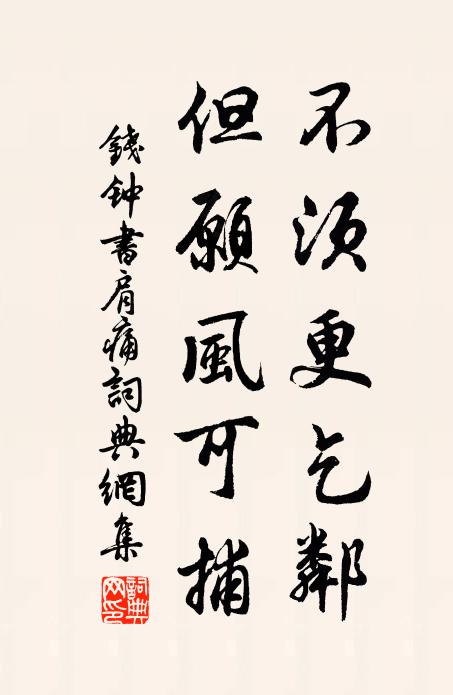 不須更乞鄰
但願風可捕
錢钟書肩痛詞典網集
詞典
网